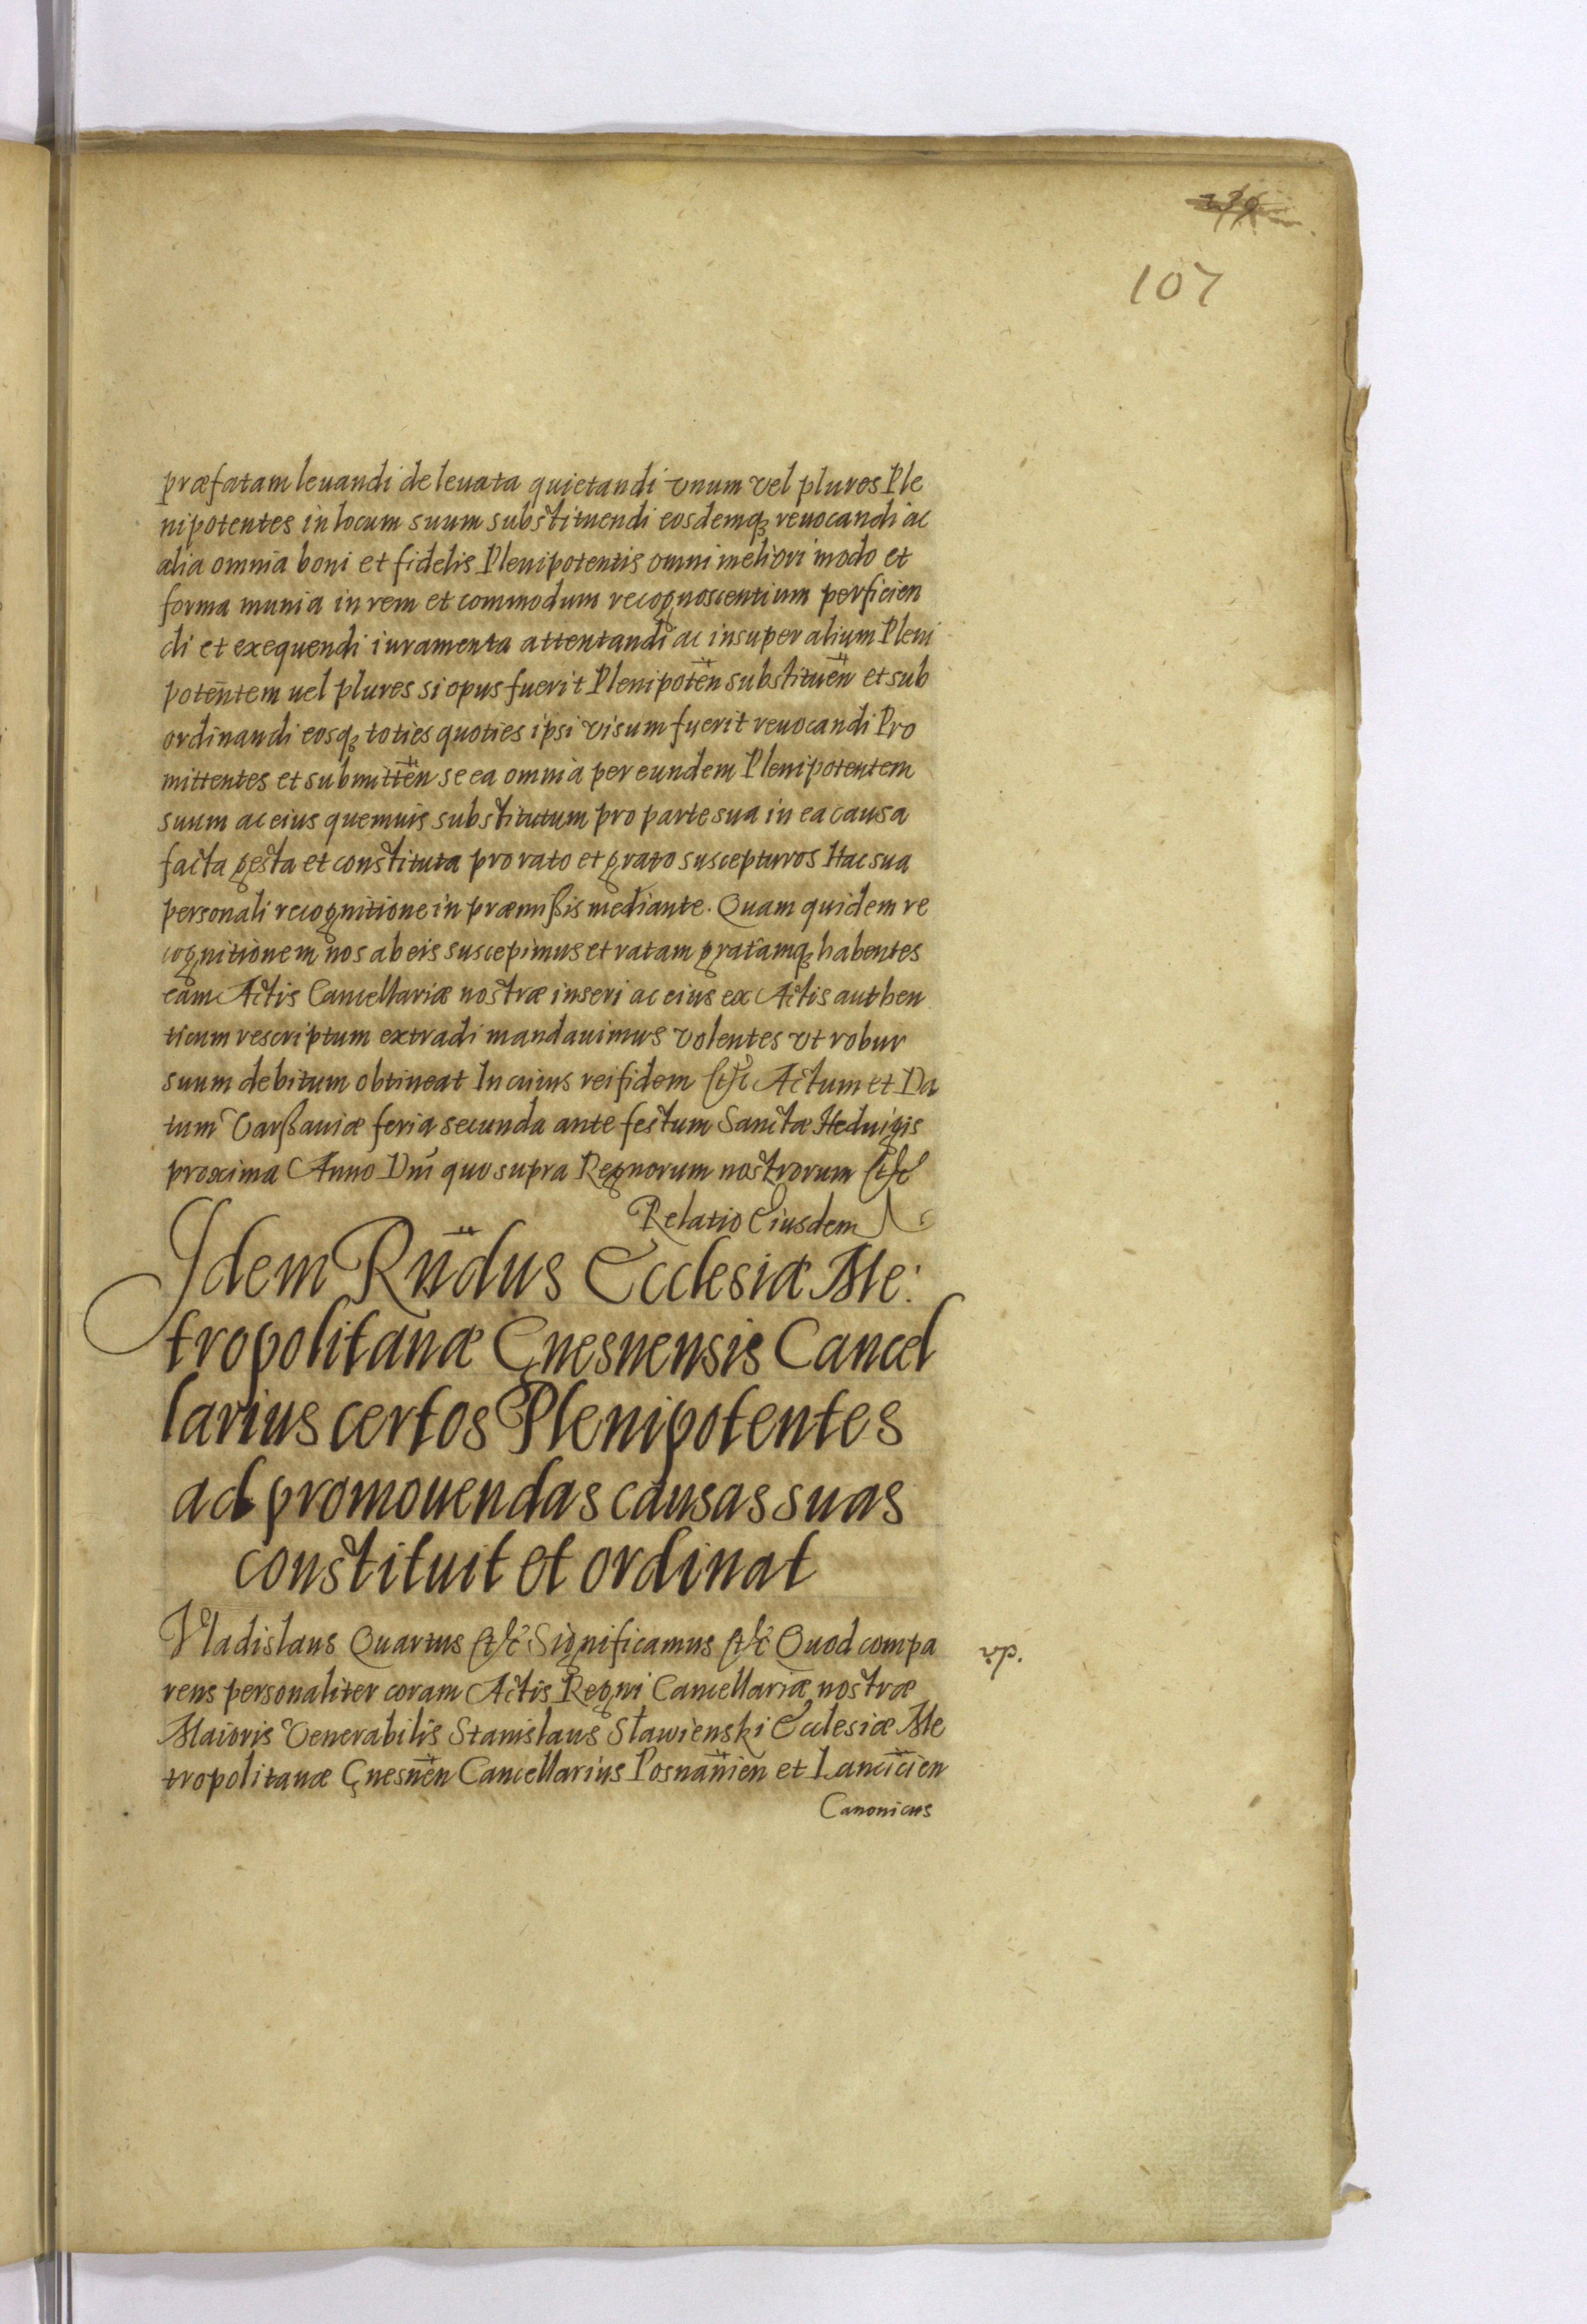 107
præfatam leuandi de leuata quietandi vnum vel plures Ple
nipotentes in locum suum substituendi eosdemq₃ reuocandi ac
alia omnia boni et fidelis Plenipotentis omni meliori modo et
forma munia in rem et commodum recognoscentium perficien
di et exequendi iuramenta attentandi ac insuper alium Pleni
potentem uel plures si opus fuerit Plenipoten̈ substituen̈ et sub
ordinandi eosq₃ toties quoties ipsi visum fuerit reuocandi Pro
mittentes et submitten̈ se ea omnia per eundem Plenipotentem
suum ac eius quemuis substitutum pro parte sua in ea causa
facta gesta et constituta pro rato et grato suscepturos Hac sua
personali recognitione in præmißis mediante. Quam quidem re
cognitionem nos ab eis suscepimus et ratam gratamq₃ habentes
eam Actis Cancellariæ nostræ inseri ac eius ex Actis authen
ticum rescriptum extradi mandauimus volentes vt robur
suum debitum obtineat In cuius rei fidem etc Actum et Da
tum Varßauiæ feria secunda ante festum Sanctæ Heduigis
proxima Anno Dn̄i quo supra Regnorum nostrorum etc
Relatio Eiusdem
Idem Rn̈dus Ecclesiæ Me:
tropolitanæ Gnesnensis Cancel
larius certos Plenipotentes
ad promouendas causas suas
constituit et ordinat
Vladislaus Quartus etc Significamus etc Quod compa
rens personaliter coram Actis Regni Cancellariæ nostræ
Maioris Venerabilis Stanislaus Sławienski Ecclesiæ Me
tropolitanæ Gnesnen̈ Cancellarius Posnan̈ien et Lancic̈ien
Canonicus